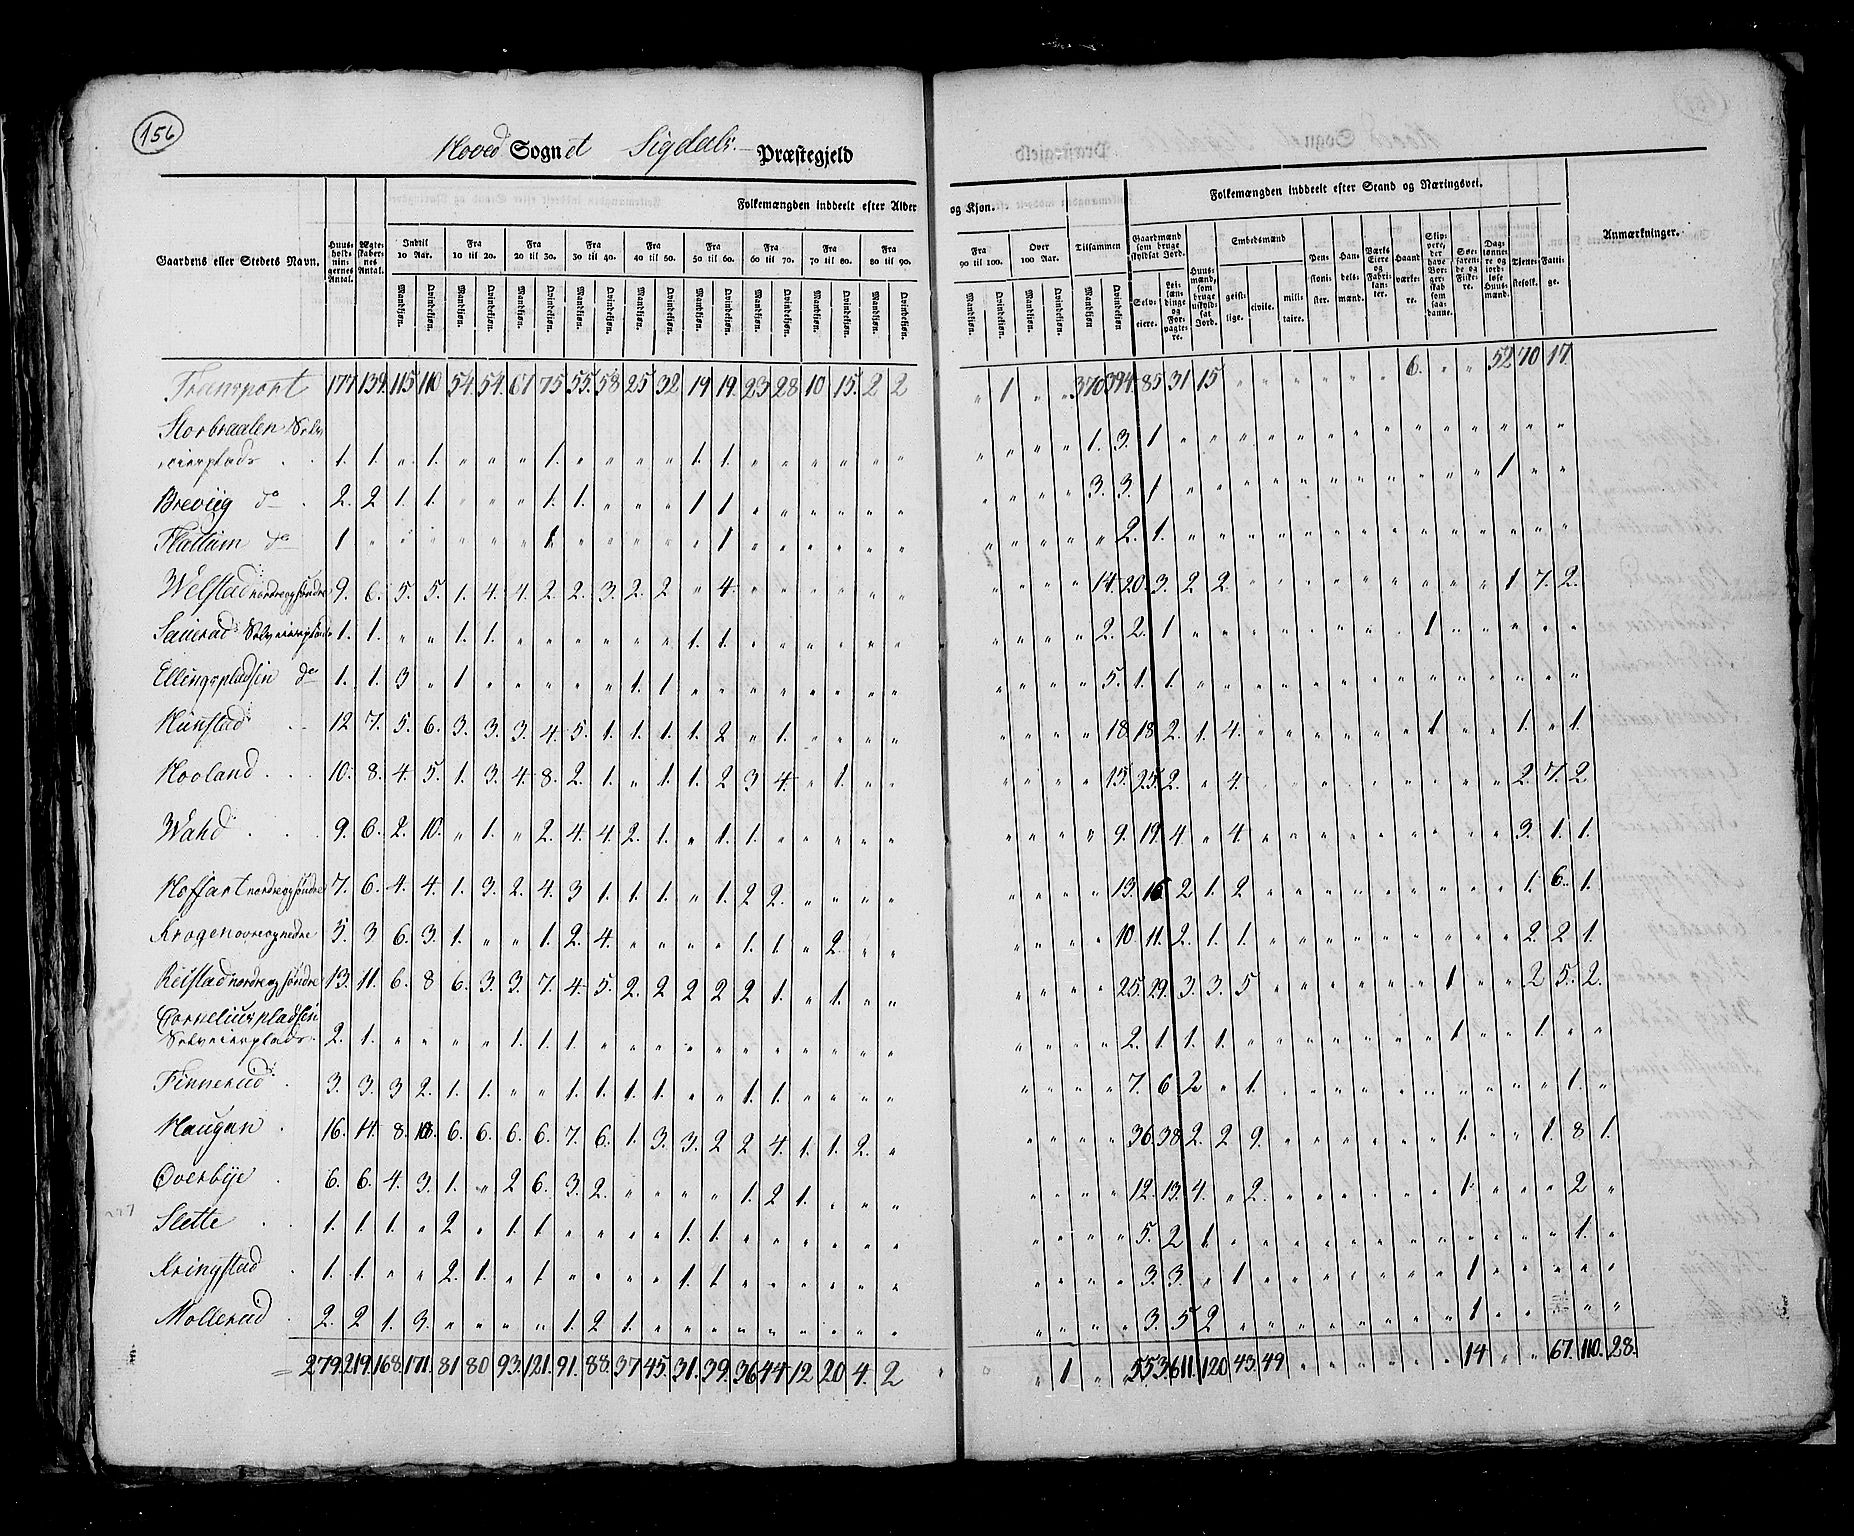 156
Hoved Sognet Sigdals Præstegjeld
Folkemængden inddeelt efter Alder og Kjøn.
Folkemængden inddeelt efter Stand og Næringsvei.
Gaardens eller Stedets Navn.
Huusholdningernes Antal.
Ægteskabernes Antal.
Indtil 10 Aar.
Fra 10 til 20.
Fra 20 til 30.
Fra 30 til 40.
Fra 40 til 50.
Fra 50 til 60.
Fra 60 til 70.
Fra 70 til 80.
Fra 80 til 90.
Fra 90 til 100.
Over 100 Aar.
Tilsammen
Mandkjøn. Qvindekjøn.
Gaardmænd som bruge skyldsat Jord.
Selveiere.
Leilændinge og Forpagtere.
Huusmænd, som bruge uskyldsat Jord.
Embedsmænd
geistlige. civile. militaire.
Pensionister.
Handelsmænd.
Værkseiere og Fabrikanter.
Haandværkere.
Skippere, der have Borgerskab som saadanne.
Søefarende og Fiskere.
Daglønnere og jordløse Huusmænd.
Tjenestefolk.
Fattige.
Anmærkninger.
Transport 177. 139. 115. 110 54. 54. 61 75 55. 58 25 32. 19 19. 23 28 10 15. 2 2 „ 1 „ „ 370 394. 85 31 15 „ „ „ „ „ „ 6. „ „ 52 70 17.
Storbraaten Selv
eierplads 1. 1. „ 1. „ „ „ 1. „ „ „ „ 1. 1. „ „ „ „ „ „ „ „ „ „ 1. 3. 1 „ „ „ „ „ „ „ „ „ „ „ „ „ „
Breviig do 2. 2 1. 1. „ „ „ 1. 1. „ „ „ 1 1 „ „ „ „ „ „ „ „ „ „ 3. 3. 1 „ „ „ „ „ „ „ „ „ „ „ 1 „ „
Flattum do 1 „ „ „ „ „ „ 1 „ „ „ „ „ 1 „ „ „ „ „ „ „ „ „ „ „ 2. 1. „ „ „ „ „ „ „ „ „ „ „ „ „ „
Welstad nordre og søndre 9. 6. 5. 5. 1. 4. 4. 2. 2. 3. 2. 2 „ 4. „ „ „ „ „ „ „ „ „ „ 14. 20. 3. 2 2. „ „ „ „ „ „ „ „ „ 1 7. 2.
Sauerud Selveierplads 1. 1. „ „ 1. 1. „ „ „ „ „ „ 1. 1. „ „ „ „ „ „ „ „ „ „ 2. 2. 1 „ „ „ „ „ „ „ „ 1 „ „ „ „ „
Ellingspladsen do 1. 1. 3 „ 1 „ „ „ „ „ 1. 1. „ „ „ „ „ „ „ „ „ „ „ „ 5. 1. 1. „ „ „ „ „ „ „ „ „ „ „ „ „ „
Hunstad 12 7. 5. 6. 3. 3. 3. 4. 5. 1. 1. 1. 1. 2 „ 1. „ „ „ „ „ „ „ „ 18. 18. 2. 1. 4. „ „ „ „ „ „ 1 „ „ 1. „ 1.
Hooland 10. 8. 4. 5. 1. 3. 4. 8. 2. 1. „ 1. 1. 2 3 4. „ 1. „ „ „ „ „ „ 15. 25. 2. „ 4. „ „ „ „ „ „ „ „ „ 2. 7. 2.
Wahd 9. 6. 2. 10. „ 1. „ 2. 4. 4. 2. 1. „ 1. 1. 1. „ „ „ „ „ „ „ „ 9. 19. 4 „ 4. „ „ „ „ „ „ „ „ „ 3. 1. 1.
Hoffart nordre og søndre 7. 6. 4. 4. 1. 3. 2. 4. 3 1. 1. 1. „ 1. 2 2. „ „ „ „ „ „ „ „ 13. 16 2 1. 2 „ „ „ „ „ „ „ „ „ 1. 6. 1.
Krogen øvre og nedre 5. 3 6. 3. 1. „ „ 1. 2. 4. „ „ „ „ 1. 1. „ 2. „ „ „ „ „ „ 10. 11. 2. 1. 1. „ „ „ „ „ „ „ „ „ 2. 2 1.
Reistad nordre og søndre 13. 11. 6. 8 6. 3. 3. 7. 4. 5. 2. 2 2 2 2 1. „ 1. „ „ „ „ „ „ 25. 29. 3. 3. 5 „ „ „ „ „ „ 1 „ „ 2 5. 2.
Corneliuspladsen
Selveierplads 2. 1. „ „ „ „ 1. 1. 1. „ „ „ „ „ „ „ „ „ „ „ „ „ „ „ 2. 1 1. 1. „ „ „ „ „ „ „ 1 „ „ 1. „ „
Finnerud 3. 3. 3 2. 1. 1. „ „ 1. 1. 1. 1. „ „ 1. 1. „ „ „ „ „ „ „ „ 7. 6 2 „ 1. „ „ „ „ „ „ „ „ „ „ 1. „
Haugan 16. 14. 8. 10. 6. 6. 6. 6. 7. 6. 1. 3. 3. 2 2 4. 1. 1. 2. „ „ „ „ „ 36. 38 2. 2 9. „ „ „ „ „ „ 1. „ „ 1. 8 1.
Overbye 6. 6. 4. 3. 1. „ 2 6. 3. 2. „ „ „ „ 1. 2 1. „ „ „ „ „ „ „ 12. 13. 4. „ 2. „ „ „ „ „ „ 1. „ „ „ 2 „
Slette 1. 1. 1. „ 2. „ 1. 1. „ „ „ „ 1. 1. „ „ „ „ „ „ „ „ „ „ 5. 2 1 „ „ „ „ „ „ „ „ „ „ „ „ 1. „
Kringstad 1. 1. „ „ 2. 1. „ 1 „ „ „ „ 1. 1. „ „ „ „ „ „ „ „ „ „ 3. 3. „ 1 „ „ „ „ „ „ „ 1 „ „ „ „ „
Mollerud 2. 2 1. 3. „ „ „ „ 1. 2 1. „ „ „ „ „ „ „ „ „ „ „ „ „ 3. 5 2 „ „ „ „ „ „ „ „ 1 „ „ „ „ „
= 279. 219. 168. 171. 81 80 93. 121. 91. 88. 37 45. 31. 39. 36 44 12 20 4. 2 „ 1 „ „ 553. 611. 120 43. 49 „ „ „ „ „ „ 14 „ „ 67. 110. 28.